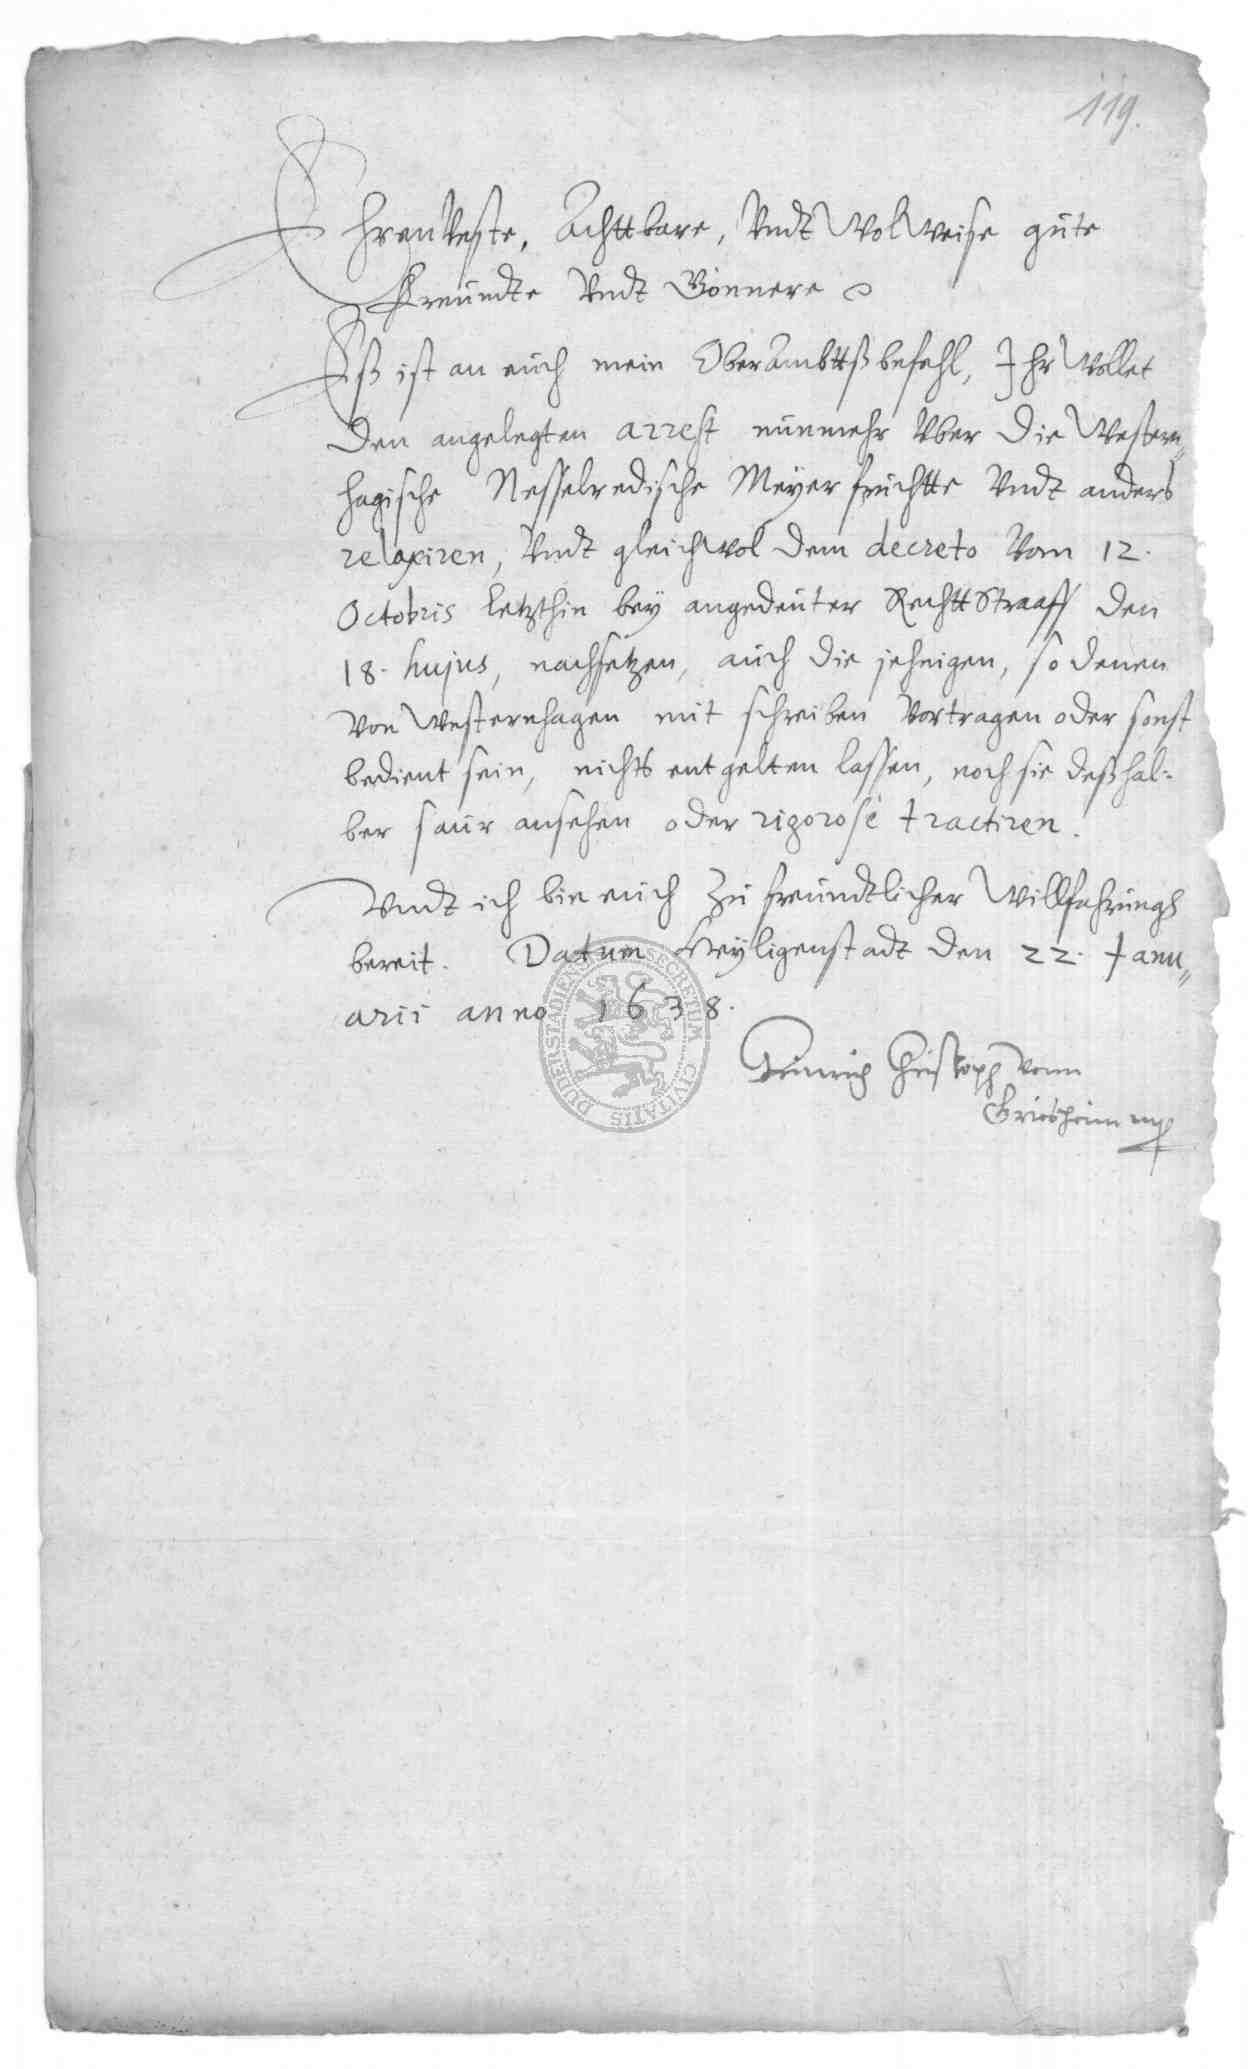 119.
EhrenVeste, Achttbare, Vndt WolWeise gute
Freundte Vndt Gönnere
Eß ist an euch mein OberAmbttßbefehl, Ihr Wollet
den angelegten arrest nunmehr Vber die Western„
hagische Nesselredische Meyerfrüchtte Vndt anders
relaxiren, Vndt gleichwol dem decreto Vom 12.
Octobris letzthin bey angedeuter RechttStraaff den
18. hujus, nachsetzen, auch die jehnigen, so denen
Von Westernhagen mit schreiben Vortragen oder sonst
bedient sein, nichts entgelten lassen, noch sie deßhal-
ber saur ansehen oder rigorosè tractiren.
Vndt ich bin euch zu freundtlicher Willfahrungh
bereit. Datum Heyligenstadt den 22. Janu„
arii anno 1638.
Heinrich Christoph vonn
Griesheim mp
SECRETUM CIVITATIS DUDERSTADIENSIS